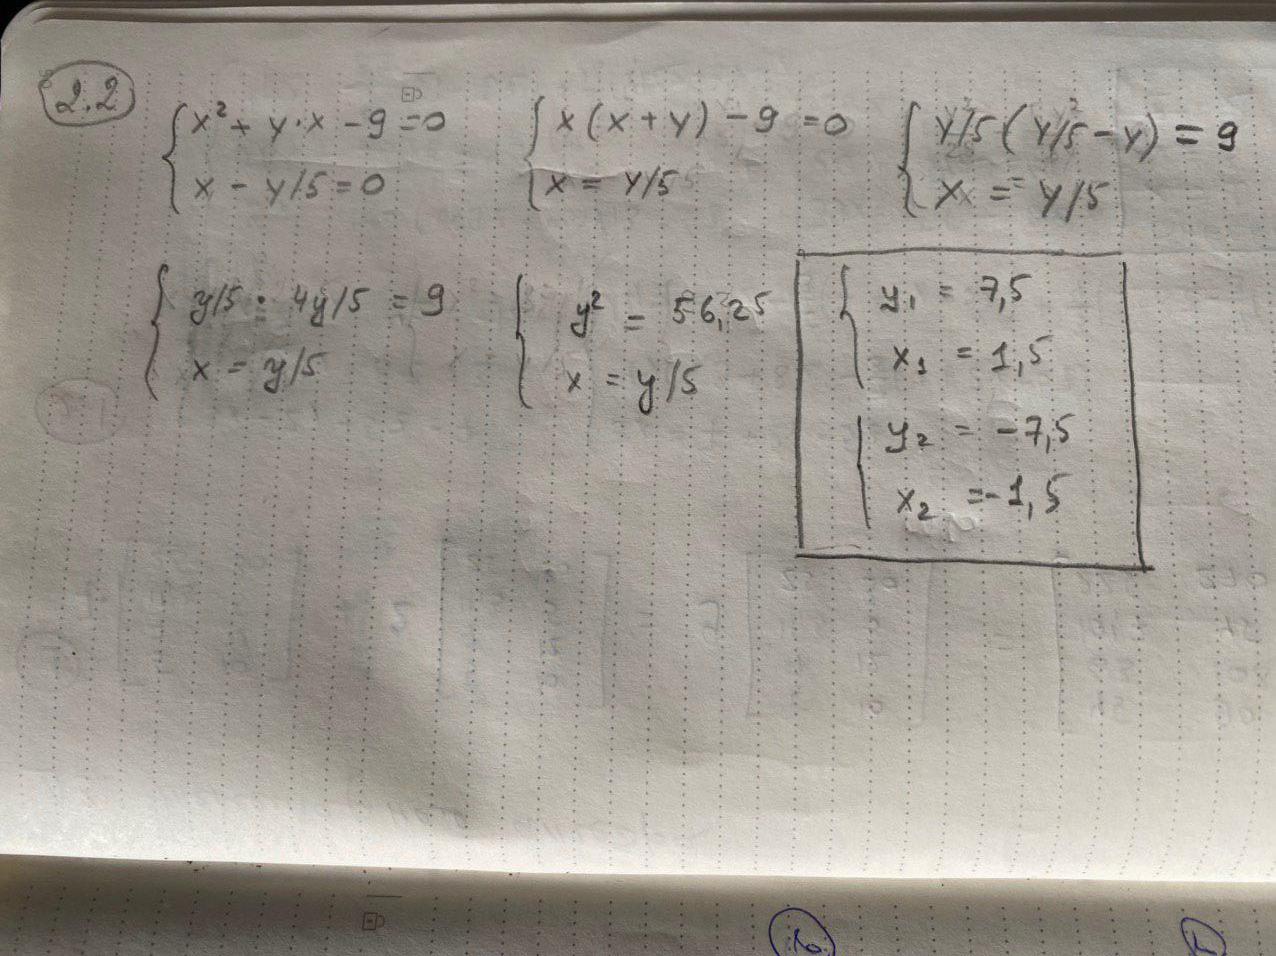 2.2
x² + y·x - 9 = 0
x - y/5 = 0
x(x + y) - 9 = 0
x = y/5
y/5 (y/5 - y) = 9
x = y/5
y/5 · 4y/5 = 9
x = y/5
y² = 56,25
x = y/5
y₁ = 7,5
x₁ = 1,5
y₂ = -7,5
x₂ = -1,5